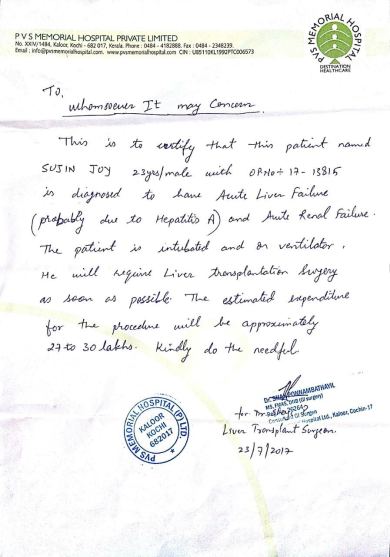 P V S MEMORIAL HOSPITAL PRIVATE LIMITED
No. XXIV/1484, Kaloor, Kochi - 682 017, Kerala. Phone : 0484 - 4182888. Fax : 0484 - 2348239.
Email : info@pvsmemorialhospital.com. www.pvsmemorialhospital.com CIN : U85110KL1992PTC006573
PVS MEMORIAL HOSPITAL
DESTINATION
HEALTHCARE
To,
whomsoever It may Concern.
This is to certify that this patient named
SUJIN JOY 23yrs/male with OPNo:- 17-13815
is diagnosed to have Acute Liver Failure
(probably due to Hepatitis A) and Acute Renal Failure.
The patient is intubated and on ventilator.
He will require Liver transplantation Surgery
as soon as possible. The estimated expenditure
for the procedure will be approximately
27 to 30 lakhs. Kindly do the needful
PVS MEMORIAL HOSPITAL (P) LTD.
KALOOR
KOCHI
682017
(GI Surgery)
for Dr.
Hospital Ltd., Kaloor, Cochin-17
Liver Transplant Surgeon.
23/7/2017